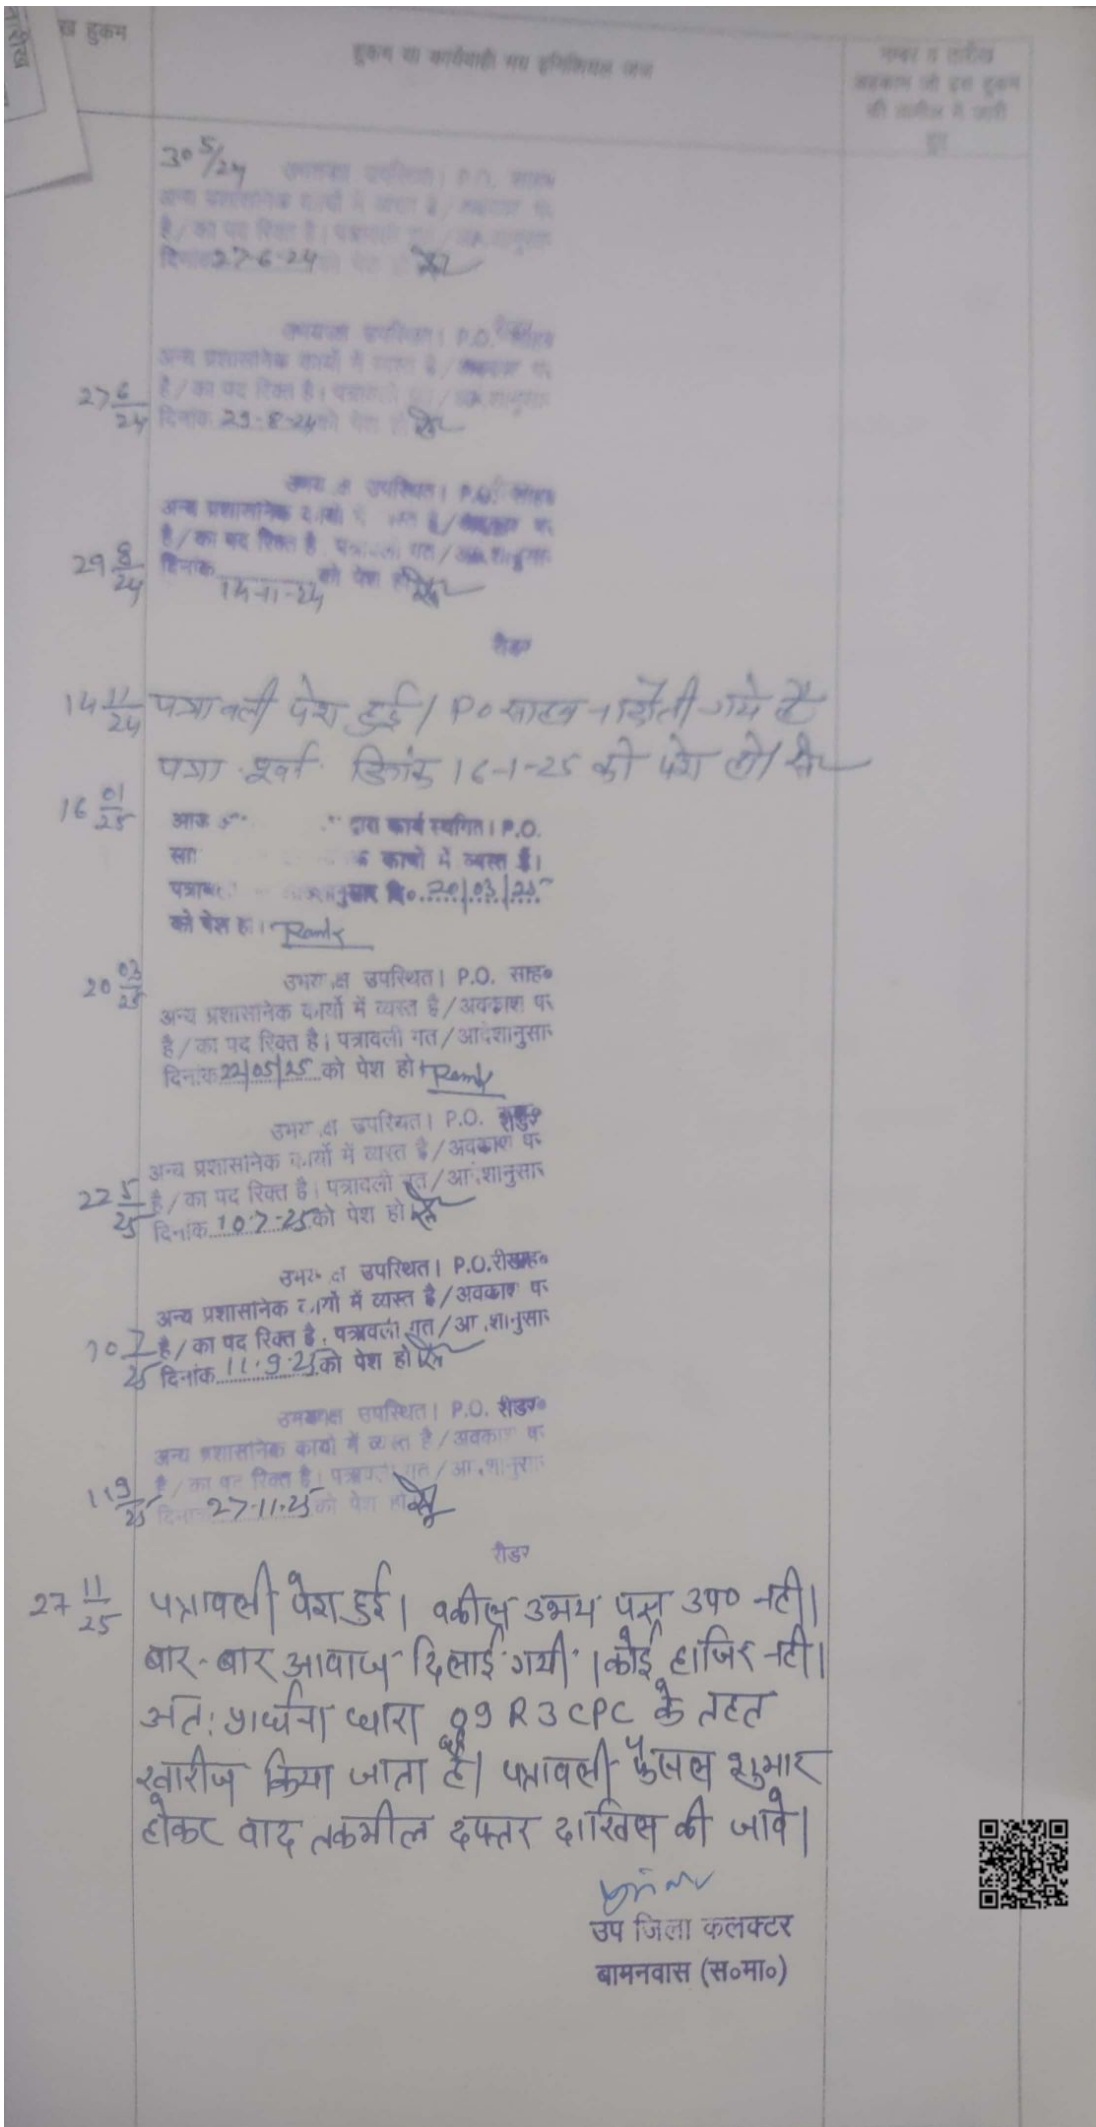 तारीख
ख हुकम
हुकम या कार्यवाही मय इनिशियल जज
नम्बर व तारीख
अहकाम जो इस हुकम
की तामील में जारी
हुए
30 5/24
उपस्थित। P.O. साहब
अन्य प्रशासनिक कार्यो में व्यस्त है / अवकाश पर
है / का पद रिक्त है। पत्रावली गत /
दिनांक 27-6-24 को पेश हो
उपस्थित। P.O.
अन्य प्रशासनिक कार्यो में व्यस्त है / अवकाश पर
27 6/24 है / का पद रिक्त है।
दिनांक 29-8-24 को पेश हो
उपस्थित। P.O. साहब
अन्य प्रशासनिक कार्यो में है / अवकाश पर
है / का पद रिक्त है पत्रावली गत /
29 8/24 दिनांक 14-11-24 को पेश हो
रीडर
14 11/24 पत्रावली पेश हुई। P० साहब गये है
पत्रा दिनांक 16-1-25 को पेश हो।
16 01/25 आज द्वारा कार्य स्थगित। P.O.
सा कार्यो में व्यस्त है।
दि० 20/03/25
को पेश हो।
20 03/25 उभय क्ष उपस्थित। P.O. साह०
अन्य प्रशासनिक कार्यो में व्यस्त है / अवकाश पर
है / का पद रिक्त है। पत्रावली गत / आदेशानुसार
दिनांक 22/05/25 को पेश हो।
उभय क्ष उपस्थित। P.O. रीडर
अन्य प्रशासनिक कार्यो में व्यस्त है / अवकाश पर
22 5/25 है / का पद रिक्त है। पत्रावली गत / आ शानुसार
दिनांक 10-7-25 को पेश हो
उभय क्ष उपस्थित। P.O. रीडर
अन्य प्रशासनिक कार्यो में व्यस्त है / अवकाश पर
10 7/25 है / का पद रिक्त है. पत्रावली गत / आ शानुसार
दिनांक 11.9.25 को पेश हो
उभय क्ष उपस्थित। P.O. रीडर
अन्य प्रशासनिक कार्यो में व्यस्त है / अवकाश पर
11 9/25 है / का पद रिक्त है। पत्रावली गत / आ शानुसार
दिनांक 27-11-25 को पेश हो
रीडर
27 11/25 पत्रावली पेश हुई। वकील उभय पक्ष उप० नही।
बार-बार आवाज दिलाई गयी। कोई हाजिर नही।
अत: प्रार्थना 09 R3 CPC के तहत
खारीज किया जाता है। पत्रावली फैसल शुमार
होकर वाद तकमील दफ्तर दाखिल की जावे।
उप जिला कलक्टर
बामनवास (स०मा०)